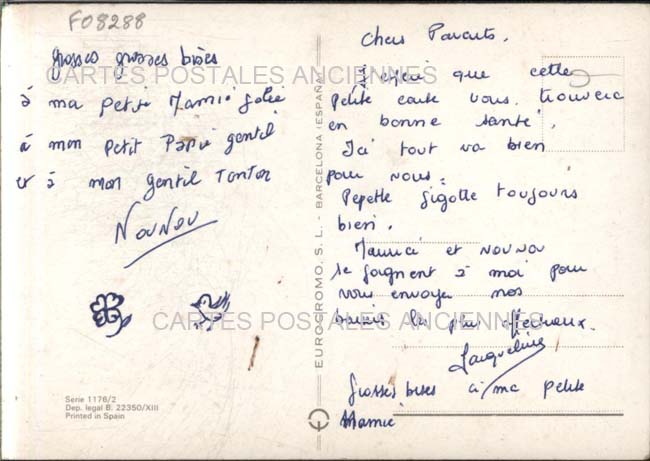 F08288
grosses grosses bises
à ma petite Mamie jolie
à mon petit Papie gentil
et à mon gentil Tonton
NOUNOU
Serie 1176/2
Dep. legal B. 22350/XIII
Printed in Spain
EUROCROMO, S. L. - BARCELONA (ESPAÑA)
Chers Parents.
J'espère que cette
petite carte vous trouvera
en bonne santé.
Ici tout va bien
pour nous.
Pepette gigotte toujours
bien.
Maurice et NOUNOU
se joignent à moi pour
vous envoyer nos
baisers les plus affectueux.
Jacqueline
Grosses bises à ma petite
Mamie
CARTES POSTALES ANCIENNES
CARTES POSTALES ANCIENNES